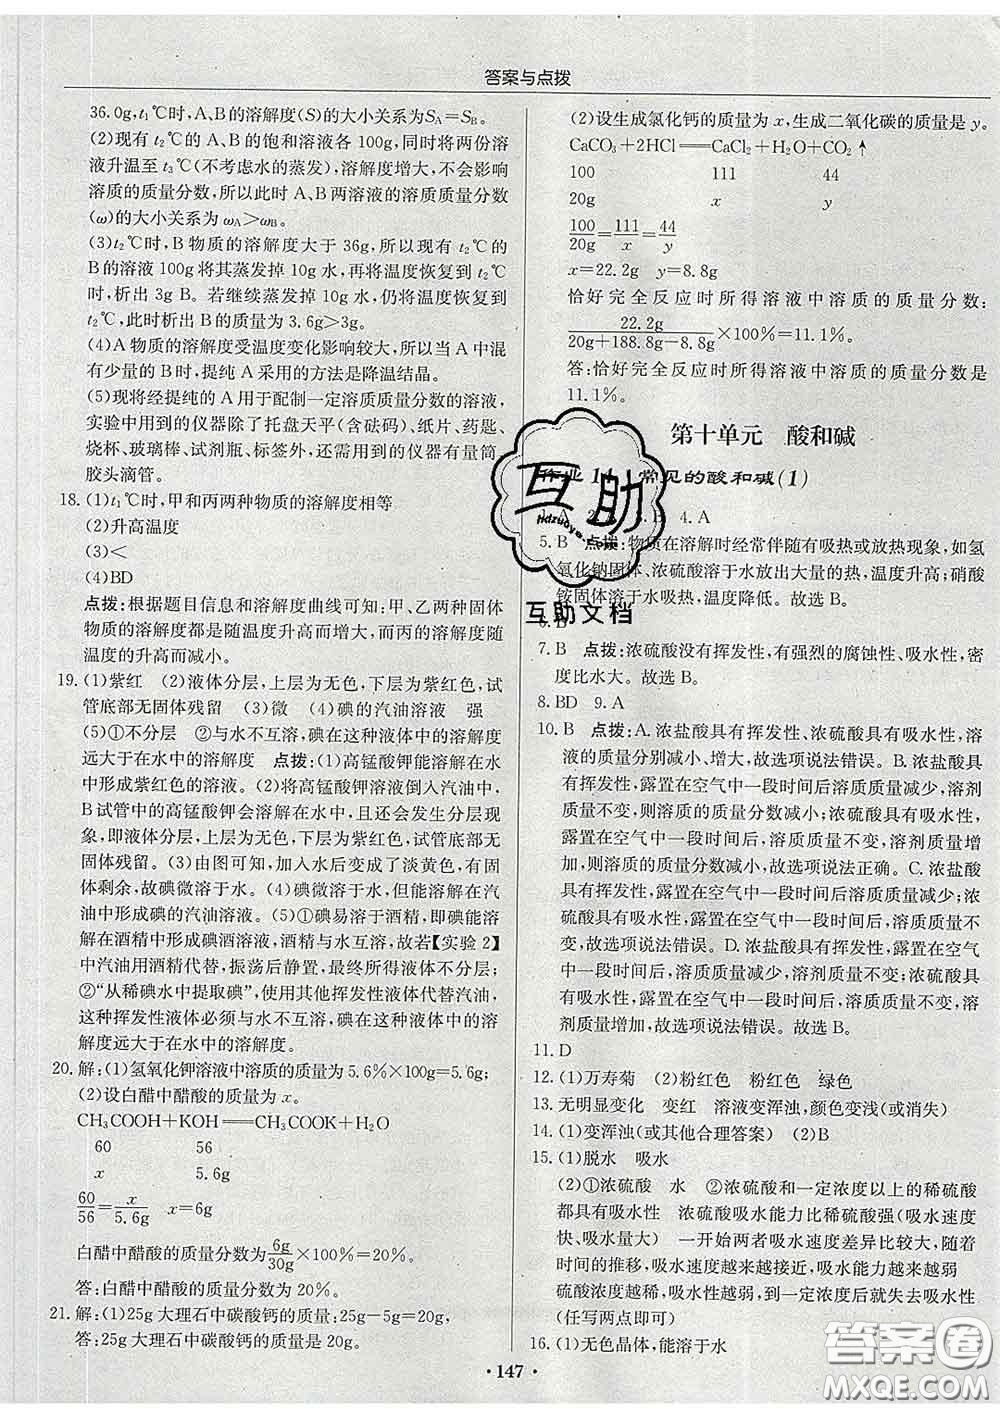 答案与点拨
36.0g,t₁℃时,A、B的溶解度(S)的大小关系为S_A=S_B。
(2)现有 t₂℃的 A、B 的饱和溶液各 100g,同时将两份溶
液升温至 t₃℃(不考虑水的蒸发),溶解度增大,不会影响
溶质的质量分数,所以此时 A、B 两溶液的溶质质量分数
(ω)的大小关系为 ω_A>ω_B。
(3)t₂℃时,B 物质的溶解度大于 36g,所以现有 t₂℃的
B的溶液 100g 将其蒸发掉 10g 水,再将温度恢复到 t₂℃
时,析出 3g B。若继续蒸发掉 10g 水,仍将温度恢复到
t₂℃,此时析出 B 的质量为 3.6g>3g。
(4)A 物质的溶解度受温度变化影响较大,所以当 A 中混
有少量的 B 时,提纯 A 采用的方法是降温结晶。
(5)现将经提纯的 A 用于配制一定溶质质量分数的溶液,
实验中用到的仪器除了托盘天平(含砝码)、纸片、药匙、
烧杯、玻璃棒、试剂瓶、标签外,还需用到的仪器有量筒、
胶头滴管。
18. (1)t₁℃时,甲和丙两种物质的溶解度相等
(2)升高温度
(3)<
(4)BD
点拨:根据题目信息和溶解度曲线可知:甲、乙两种固体
物质的溶解度都是随温度升高而增大,而丙的溶解度随
温度的升高而减小。
19. (1)紫红 (2)液体分层,上层为无色,下层为紫红色,试
管底部无固体残留 (3)微 (4)碘的汽油溶液 强
(5)①不分层 ②与水不互溶,碘在这种液体中的溶解度
远大于在水中的溶解度 点拨:(1)高锰酸钾能溶解在水
中形成紫红色的溶液。(2)将高锰酸钾溶液倒入汽油中,
B试管中的高锰酸钾会溶解在水中,还会发生分层现
象,即液体分层,上层为无色,下层为紫红色,试管底部无
固体残留。(3)由图可知,加入水后变成了淡黄色,有固
体剩余,故碘微溶于水。(4)碘微溶于水,但能溶解在汽
油中形成碘的汽油溶液。(5)①碘易溶于酒精,即碘能溶
解在酒精中形成碘酒溶液,酒精与水互溶,故若【实验 2】
中汽油用酒精代替,振荡后静置,最终所得液体不分层;
②“从稀碘水中提取碘”,使用其他挥发性液体代替汽油,
这种挥发性液体必须与水不互溶,碘在这种液体中的溶
解度远大于在水中的溶解度。
20. 解:(1)氢氧化钾溶液中溶质的质量为 5.6%×100g=5.6g;
(2)设白醋中醋酸的质量为 x。
CH₃COOH+KOH══CH₃COOK+H₂O
60 56
x 5.6g
60/56=x/5.6g x=6g
白醋中醋酸的质量分数为6g/30g×100%=20%。
答:白醋中醋酸的质量分数为 20%。
21. 解:(1)25g 大理石中碳酸钙的质量:25g-5g=20g,
答:25g 大理石中碳酸钙的质量是 20g。
(2)设生成氯化钙的质量为 x,生成二氧化碳的质量是 y。
CaCO₃+2HCl══CaCl₂+H₂O+CO₂↑
100 111 44
20g x y
100/20g=111/x=44/y
x=22.2g y=8.8g
恰好完全反应时所得溶液中溶质的质量分数:
22.2g/(20g+188.8g-8.8g)×100%=11.1%。
答:恰好完全反应时所得溶液中溶质的质量分数是
11.1%。
第十单元 酸和碱
常见的酸和碱(1)
B 4. A
5. B 点拨:物质在溶解时经常伴随有吸热或放热现象,如氢
氧化钠固体、浓硫酸溶于水放出大量的热,温度升高;硝酸
铵固体溶于水吸热,温度降低。故选 B。
6. B
7. B 点拨:浓硫酸没有挥发性,有强烈的腐蚀性、吸水性,密
度比水大。故选 B。
8. BD 9. A
10. B 点拨:A. 浓盐酸具有挥发性、浓硫酸具有吸水性,溶
液的质量分别减小、增大,故选项说法错误。B. 浓盐酸具
有挥发性,露置在空气中一段时间后溶质质量减少,溶剂
质量不变,则溶质的质量分数减小;浓硫酸具有吸水性,
露置在空气中一段时间后,溶质质量不变,溶剂质量增
加,则溶质的质量分数减小,故选项说法正确。C. 浓盐酸
具有挥发性,露置在空气中一段时间后溶质质量减少;
浓硫酸具有吸水性,露置在空气中一段时间后,溶质质量不
变,故选项说法错误。D. 浓盐酸具有挥发性,露置在空气
中一段时间后,溶质质量减少,溶剂质量不变;浓硫酸具
有吸水性,露置在空气中一段时间后,溶质质量不变,溶
剂质量增加,故选项说法错误。故选 B。
11. D
12. (1)万寿菊 (2)粉红色 粉红色 绿色
13. 无明显变化 变红 溶液变浑浊,颜色变浅(或消失)
14. (1)变浑浊(或其他合理答案) (2)B
15. (1)脱水 吸水
(2)①浓硫酸 水 ②浓硫酸和一定浓度以上的稀硫酸
都具有吸水性 浓硫酸吸水能力比稀硫酸强(吸水速度
快、吸水量大) 一开始两者吸水速度差异比较大,随着
时间的推移,吸水速度越来越接近,吸水能力越来越弱
硫酸浓度越稀,吸水性越弱,到一定浓度后就失去吸水性
(任写两点即可)
16. (1)无色晶体,能溶于水
• 147 •
互助
互助文档
答案圈
MXQE.COM